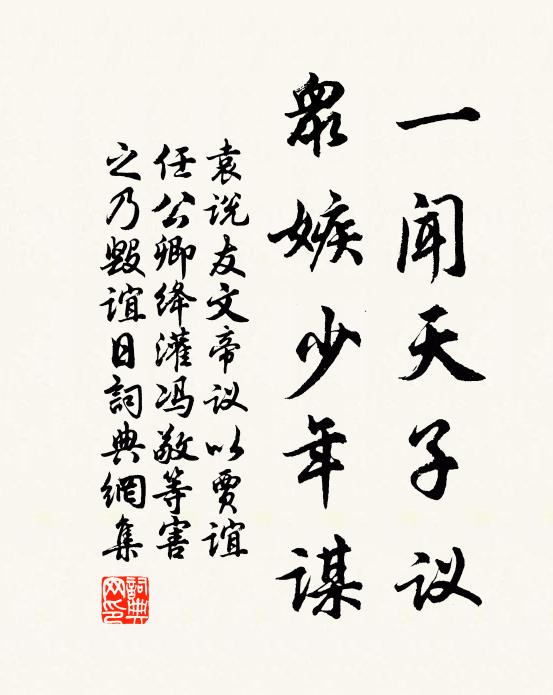 一闻天子议
眾嫉少年谋
袁说友文帝议以贾谊
任公卿绛灌冯敬等害
之乃毁谊日詞典網集
詞典
网印